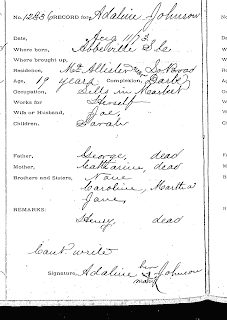 No. 12836 RECORD for Adaline Johnson
Date, Aug 11/73
Where born, Abbeville S.C.
Where brought up,
Residence, McAllister near So. Broad
Age, 19 years Complexion, Dark
Occupation, Sells in Market
Works for Herself
Wife or Husband, Joe,
Children, Sarah
Father, George, dead
Mother, Catharine, dead
Brothers and Sisters, None
Caroline, Martha
Jane,
REMARKS:
Henry, dead
Can't write
her
Signature, Adaline x Johnson
mark